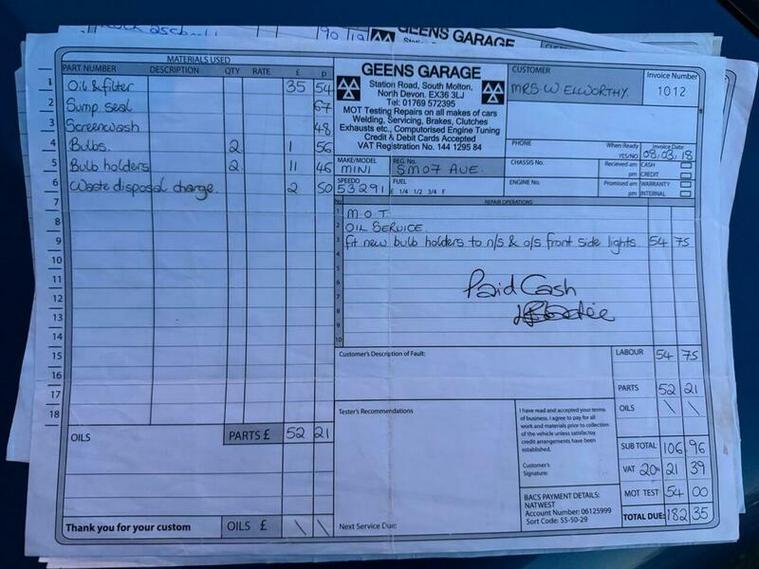 GEENS GARAGE
MATERIALS USED
PART NUMBER DESCRIPTION QTY RATE £ p
1 Oil & filter 35 54
2 Sump seal 67
3 Screenwash 48
4 Bulbs. 2 1 56
5 Bulb holders 2 11 46
6 Waste disposal charge. 2 50
7
8
9
10
11
12
13
14
15
16
17
18
OILS PARTS £ 52 21
Thank you for your custom OILS £ \ \
GEENS GARAGE
Station Road, South Molton,
North Devon. EX36 3LJ
Tel: 01769 572395
MOT Testing Repairs on all makes of cars
Welding, Servicing, Brakes, Clutches
Exhausts etc., Computorised Engine Tuning
Credit & Debit Cards Accepted
VAT Registration No. 144 1295 84
CUSTOMER
MRS W ELWORTHY.
Invoice Number
1012
PHONE When Ready Invoice Date
YES/NO 08.03.18
MAKE/MODEL MINI REG. No. SM07 AUE. CHASSIS No. Recieved am CASH
pm CREDIT
SPEEDO 53291 FUEL E 1/4 1/2 3/4 F ENGINE No. Promised am WARRANTY
pm INTERNAL
REPAIR OPERATIONS
1 M.O.T.
2 OIL SERVICE.
3 fit new bulb holders to n/s & o/s front side lights. 54 75
4
5
6
7
8
9
10
Paid Cash
Customer's Description of Fault:
LABOUR 54 75
PARTS 52 21
OILS \ \
Tester's Recommendations
I have read and accepted your terms
of business. I agree to pay for all
work and materials prior to collection
of the vehicle unless satisfactory
credit arrangements have been
established.
Customer's
Signature:
SUB TOTAL 106 96
VAT 20% 21 39
MOT TEST 54 00
TOTAL DUE: 182 35
BACS PAYMENT DETAILS:
NATWEST
Account Number: 06125999
Sort Code: 55-50-29
Next Service Due: